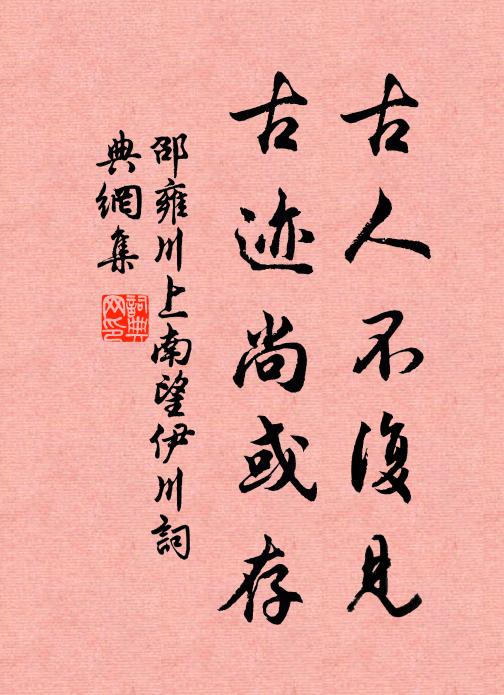 古人不復見
古迹尚或存
邵雍川上南望伊川詞
典網集
詞典
网印